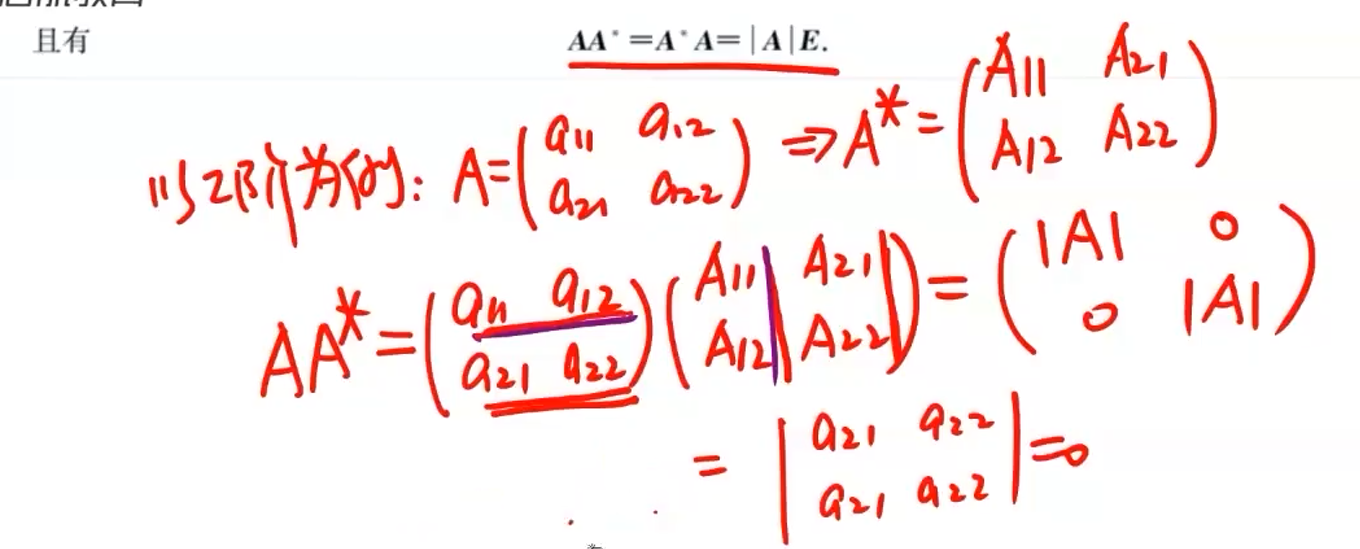 且有 AA* = A*A = |A|E.
以2阶为例: A = (a11 a12; a21 a22) ⇒ A* = (A11 A21; A12 A22)
AA* = (a11 a12; a21 a22)(A11 A21; A12 A22) = (|A| 0; 0 |A|)
= |a21 a22; a21 a22| = 0